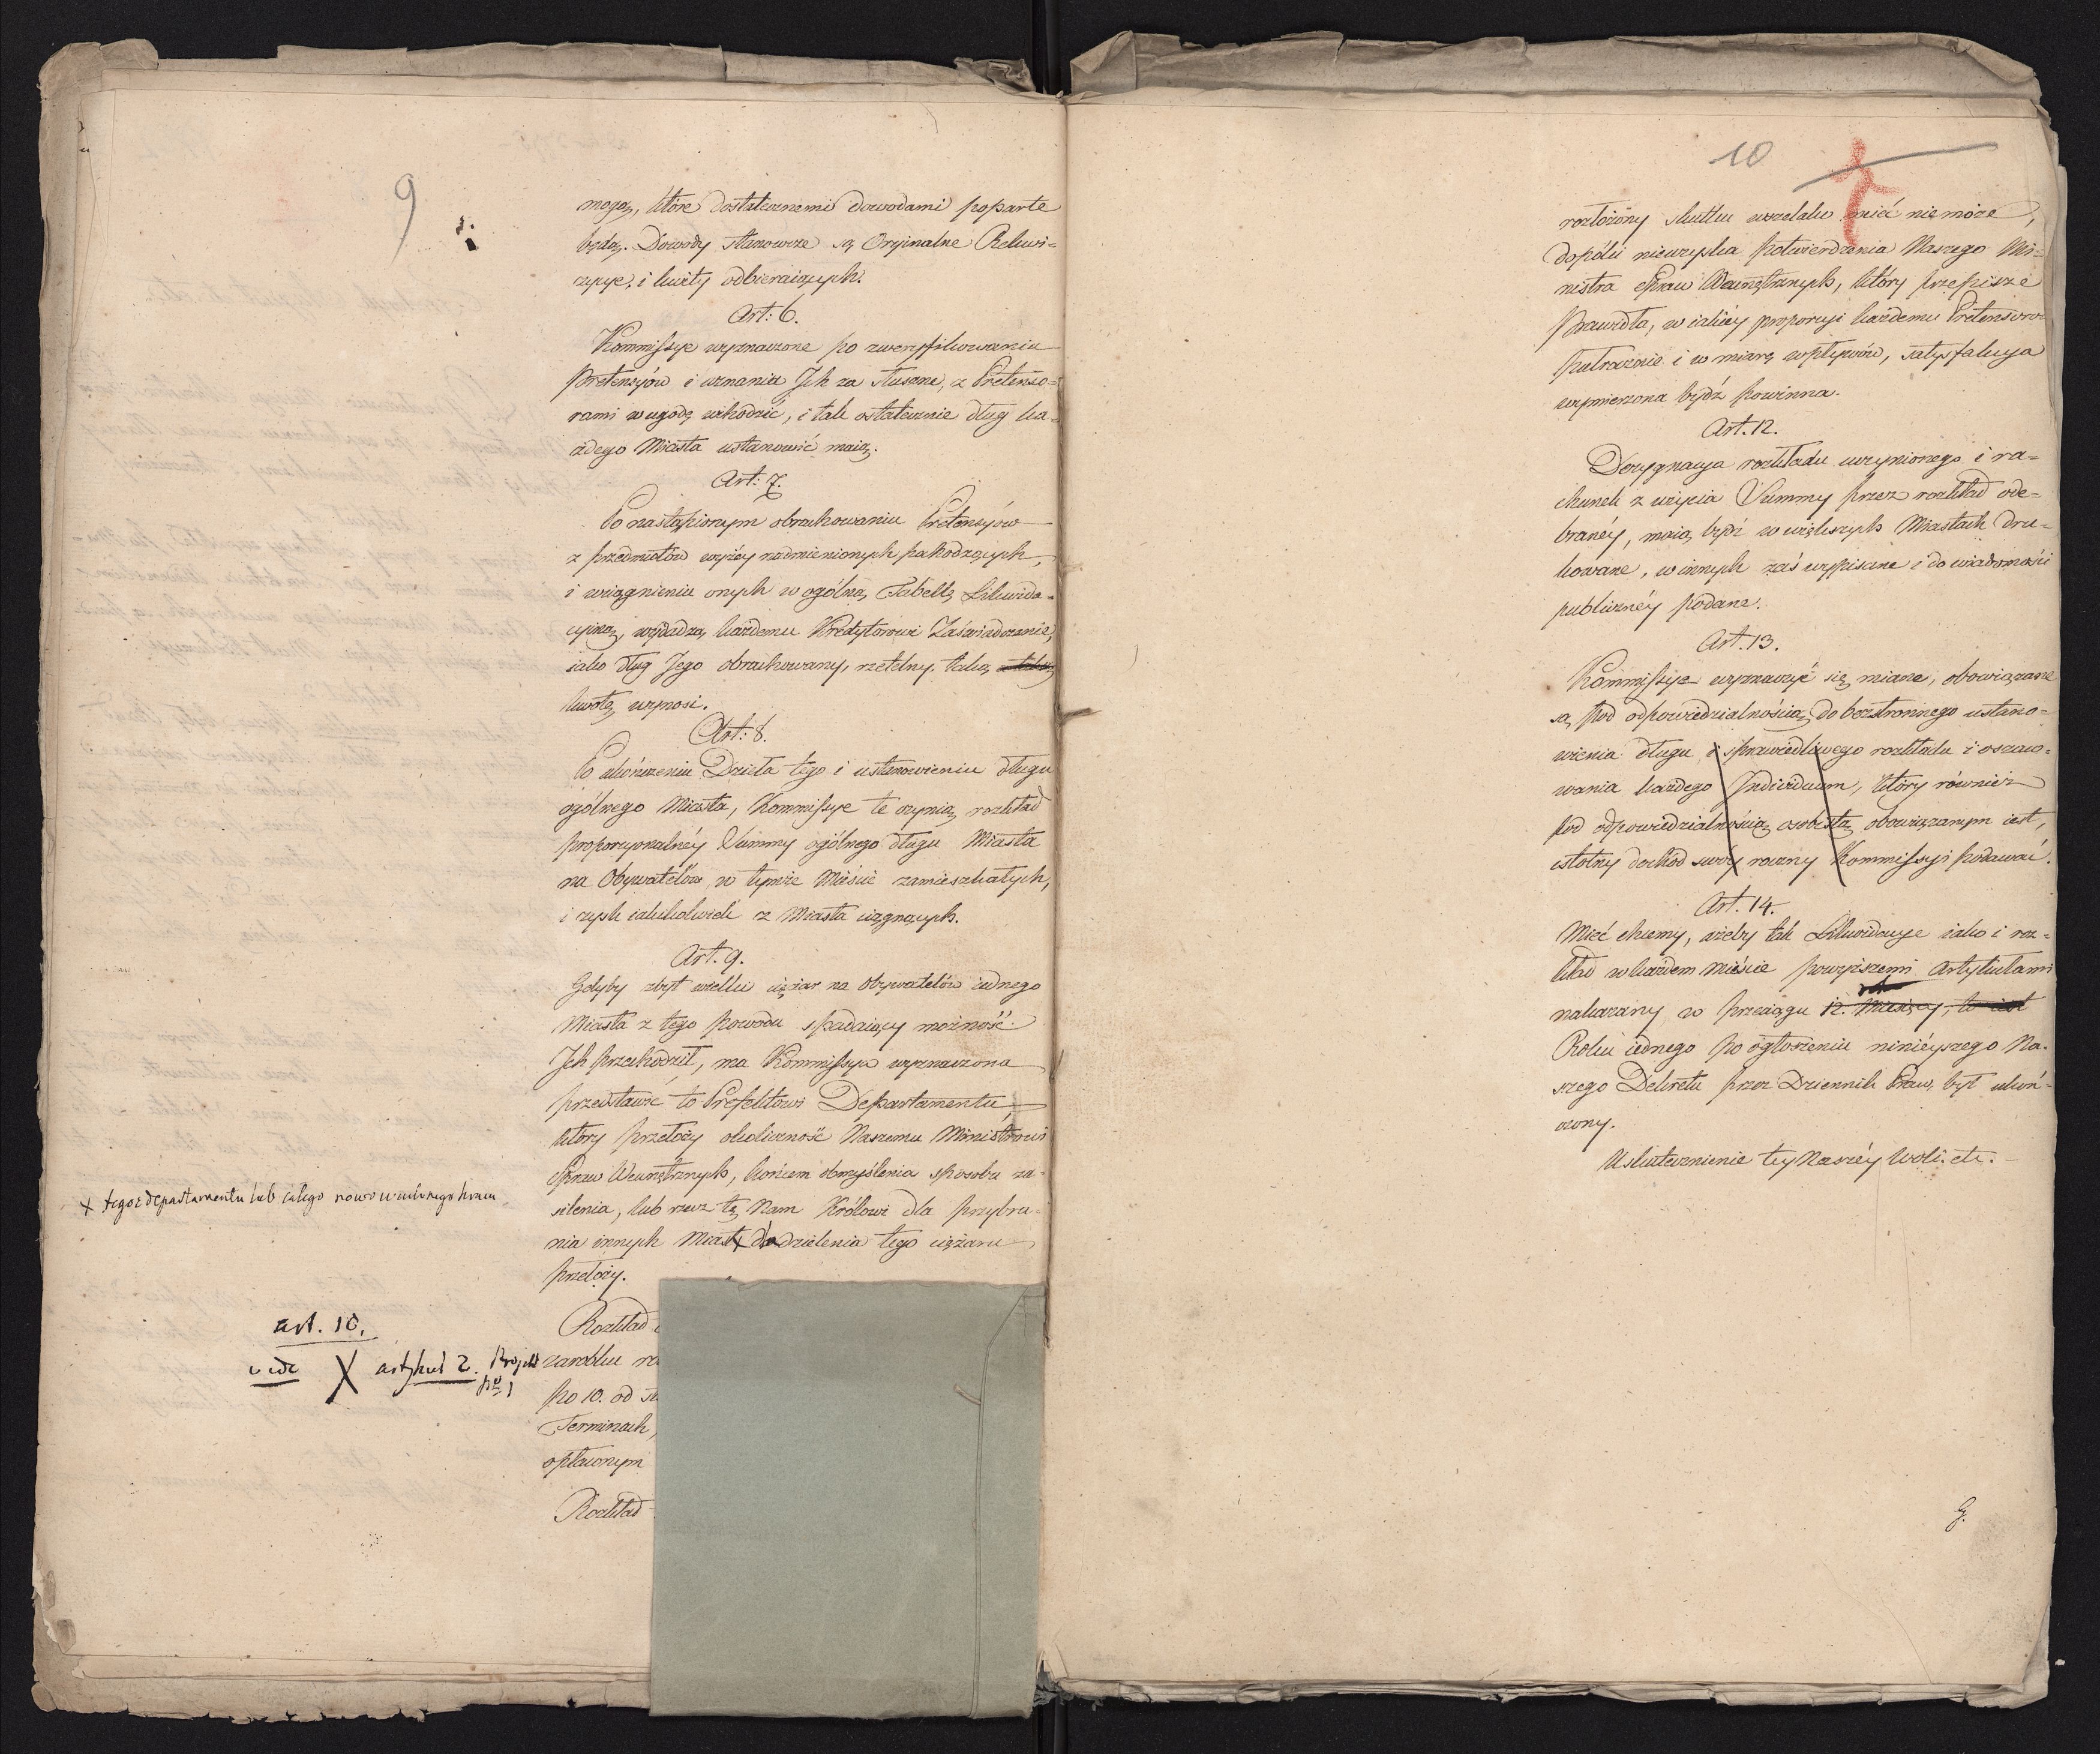 9
mogą, które dostatecznemi dowodami poparte
będą. Dowody stanowcze są Orginalne Rekwi=
zycye, i kwity odbieraiących.
Art: 6.
Kommissye wyznaczone po zweryfikowaniu
Pretensyów i uznaniu Jch za słuszne, z Pretenso=
rami w ugodę wchodzić, i tak ostatecznie dług ka=
żdego Miasta ustanowić maią.
Art: 7.
Po nastąpionym obrachowaniu Pretensyów
z przedmiotów wyżey nadmienionych pochodzących,
i wciągnieniu onych w ogólną Tabellę Likwida=
cyiną, wydadzą każdemu Kredytorowi Zaświadczenie,
iako dług Jego obrachowany, rzetelny, taką
kwotę wynosi.
Art: 8.
Po ukończeniu Dzieła tego i ustanowieniu długu
ogólnego Miasta, Kommissye te czynią rozkład
proporcyonalnéy Summy ogólnego długu Miasta
na Obywatelów w tymże Mieście zamieszkałych,
i zysk iakikolwiek z Miasta ciągnących.
Art. 9.
Gdyby zbyt wielki ciężar na Obywatelów iednego
Miasta z tego powodu spadaiący możność
Jch przechodził, ma Kommissya wyznaczona
przedstawić to Prefektowi Departamentu,
który przełoży okoliczność Naszemu Ministrowi
Spraw Wewnętrznych, końcem obmyślenia sposobu za=
silenia, lub rzecz tę Nam Królowi dla przybra=
nia innych Miast X do dzielenia tego ciężaru
przełoży.
X tegoż departamentu lub całego nowo wcielonego kraiu
art. 10.
vide X artykuł 2. Projekt
Rozkład
zarobku
po 10. od
Terminach,
opłacnym
Rozkład
10
rozłożony skutku wszelako mieć nie może,
dopóki nieuzyska potwierdzenia Naszego Mi=
nistra Spraw Wewnętrznych, który przepisze
Prawidła, w iakiéy proporcyi każdemu Pretensorowi
potrącenie i w miarę wpływów, satysfakcya
wymierzona bydź powinna.
Art. 12.
Dezygnacya rozkładu uczynionego i ra=
chunek z użycia Summy przez rozkład ode=
branéy, maią bydź w większych Miastach dru=
kowane, w innych zaś wypisane i do wiadomości
publicznéy podane.
Art. 13.
Kommissye wyznaczyć się miane, obowiązane
są pod odpowiedzialnością do bezstronnego ustano=
wienia długu i sprawiedliwego rozkładu i oszaco=
wania każdego Jndividuum, który również
pod odpowiedzialnością osobistą obowiązanym iest,
istotny dochód swóy roczny Kommissyi podawać.
Art. 14.
Mieć chcemy, ażeby tak Likwidacye iako i roz=
kład w każdem Mieście powyższemi Artykułami
nakazany w przeciągu 12. Miesięcy, to iest
Roku iednego po ogłoszeniu ninieyszego Na=
szego Dekretu przez Dziennik Praw, był ukoń=
czony.
Uskutecznienie téy Naszéy Woli. etc.